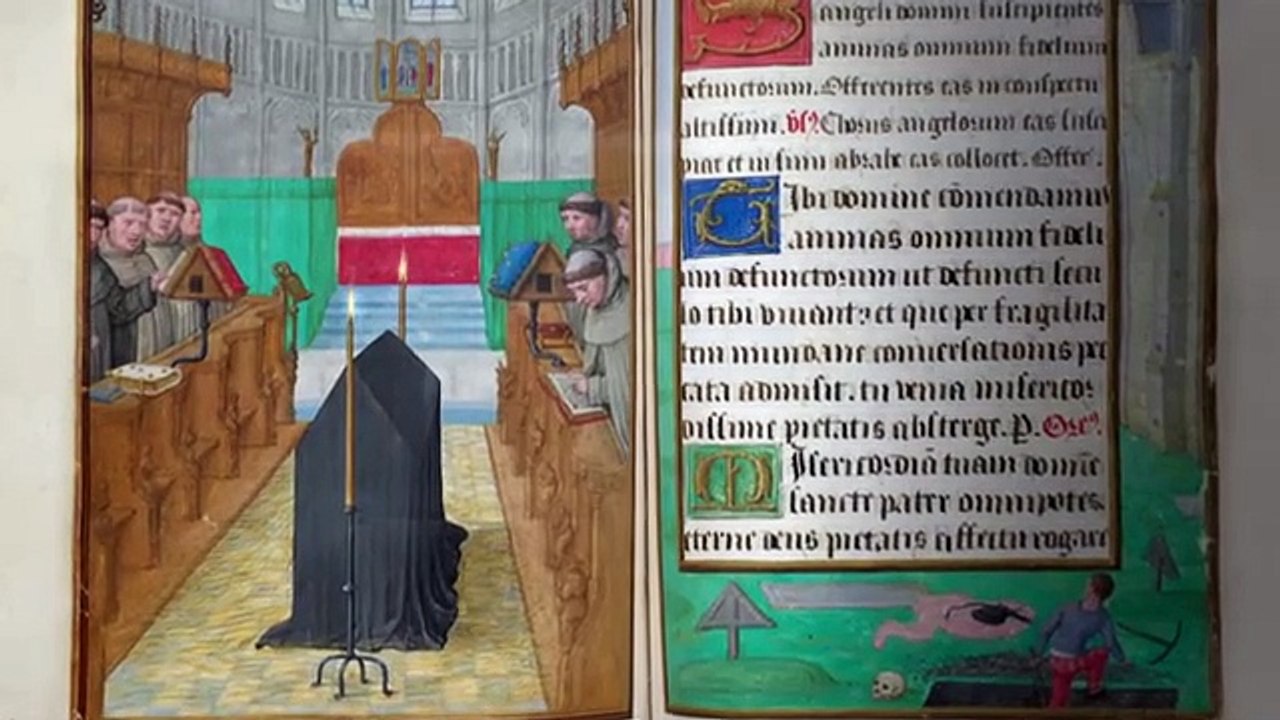 angeli domini suscipientes
animas omnium fidelium
defunctorum. Offerentes eas in conspectu
altissimi. Chorus angelorum eas susci
piat et in sinu abrahe eas collocet. Offer.
Tibi domine cōmendamus
animas omnium fideli
um defunctorum ut defuncti secu
lo tibi viuant: et que per fragilita
tem mundane conuersationis pec
cata admisit. tu venia misericor
dissime pietatis absterge. P. Oro.
Misericordiā tuam domine
sancte pater omnipotēs
eterne deus pietatis affectu rogare